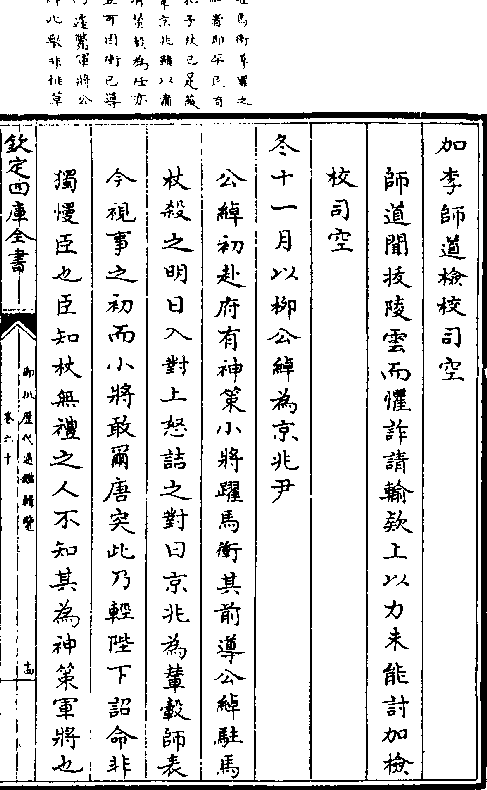 加李師道檢校司空
師道聞拔陵雲而懼詐請輸欵上以力未能討加檢
校司空
冬十一月以柳公綽為京兆尹
公綽初赴府有神策小將躍馬衝其前導公綽駐馬
杖殺之明日入對上怒詰之對曰京兆為輦轂師表
今視事之初而小將敢爾唐突此乃輕陛下詔命非
獨慢臣也臣知杖無禮之人不知其為神策軍將也
欽定四庫全書
御批歷代通鑑輯覽
卷六十